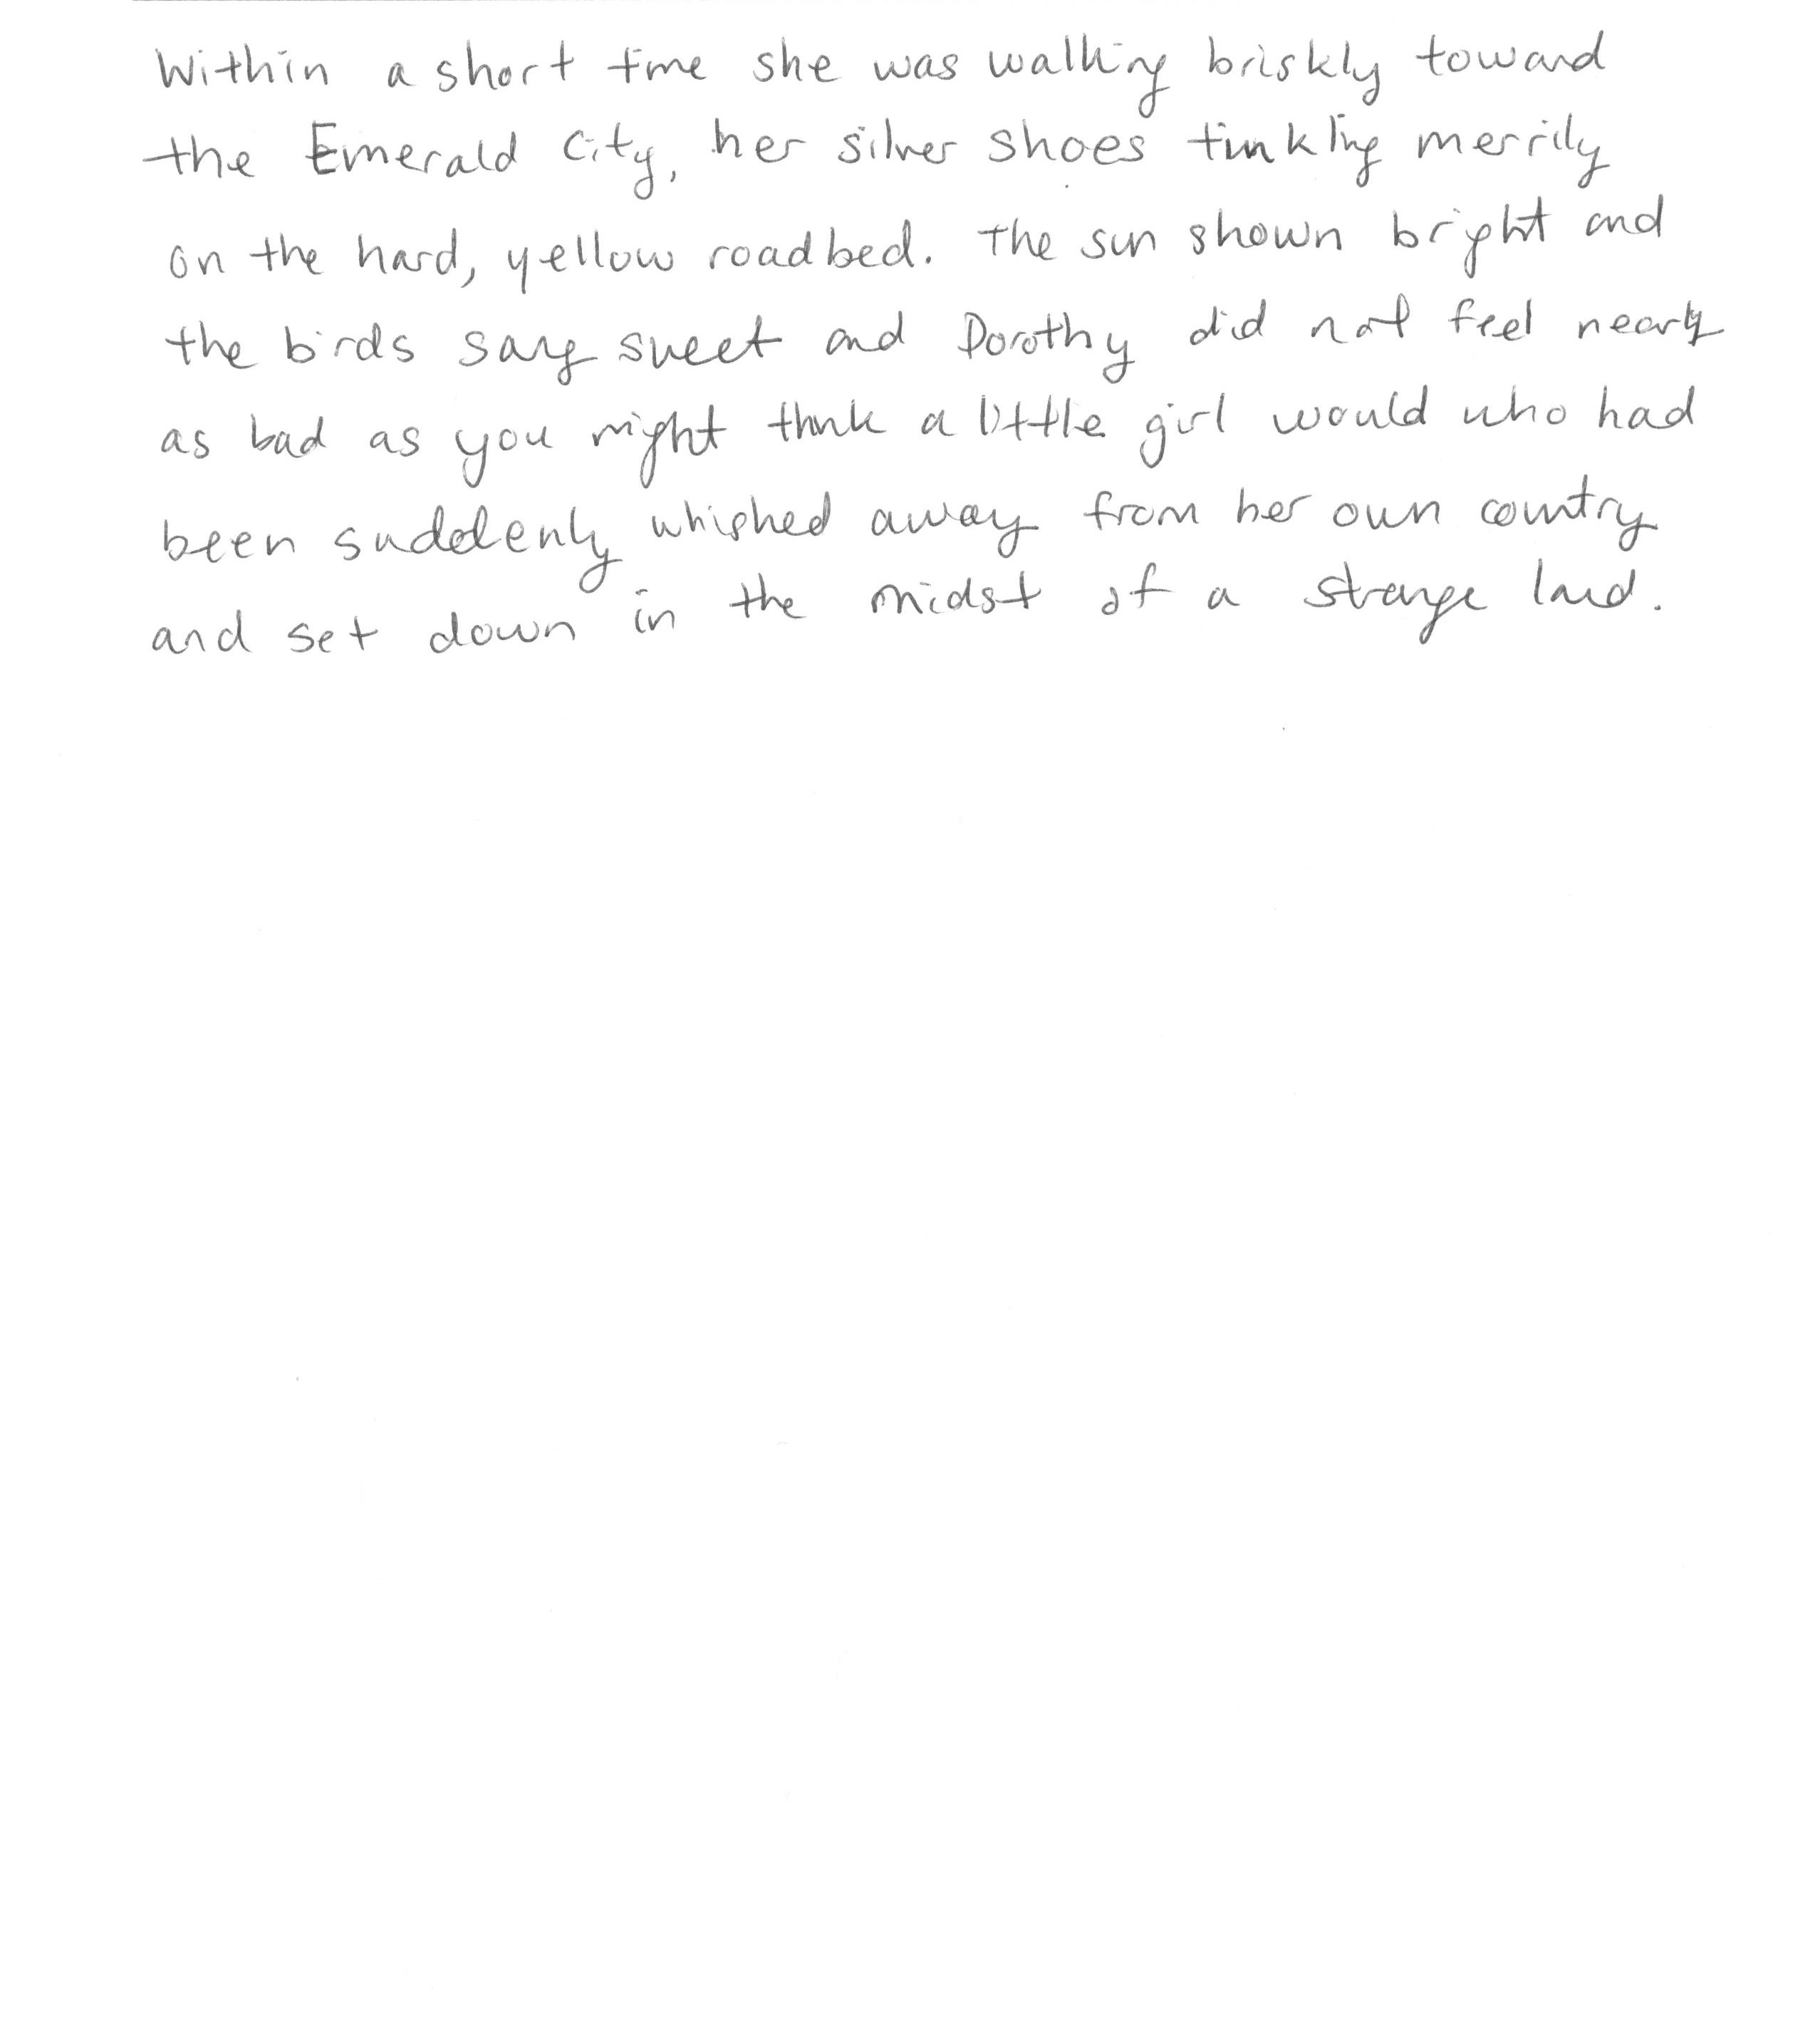 Within a short time she was walking briskly toward
the Emerald City, her silver shoes tinkling merrily
on the hard, yellow roadbed. The sun shown bright and
the birds sang sweet and Dorothy did not feel nearly
as bad as you might think a little girl would who had
been suddenly whished away from her own country
and set down in the midst of a strange land.